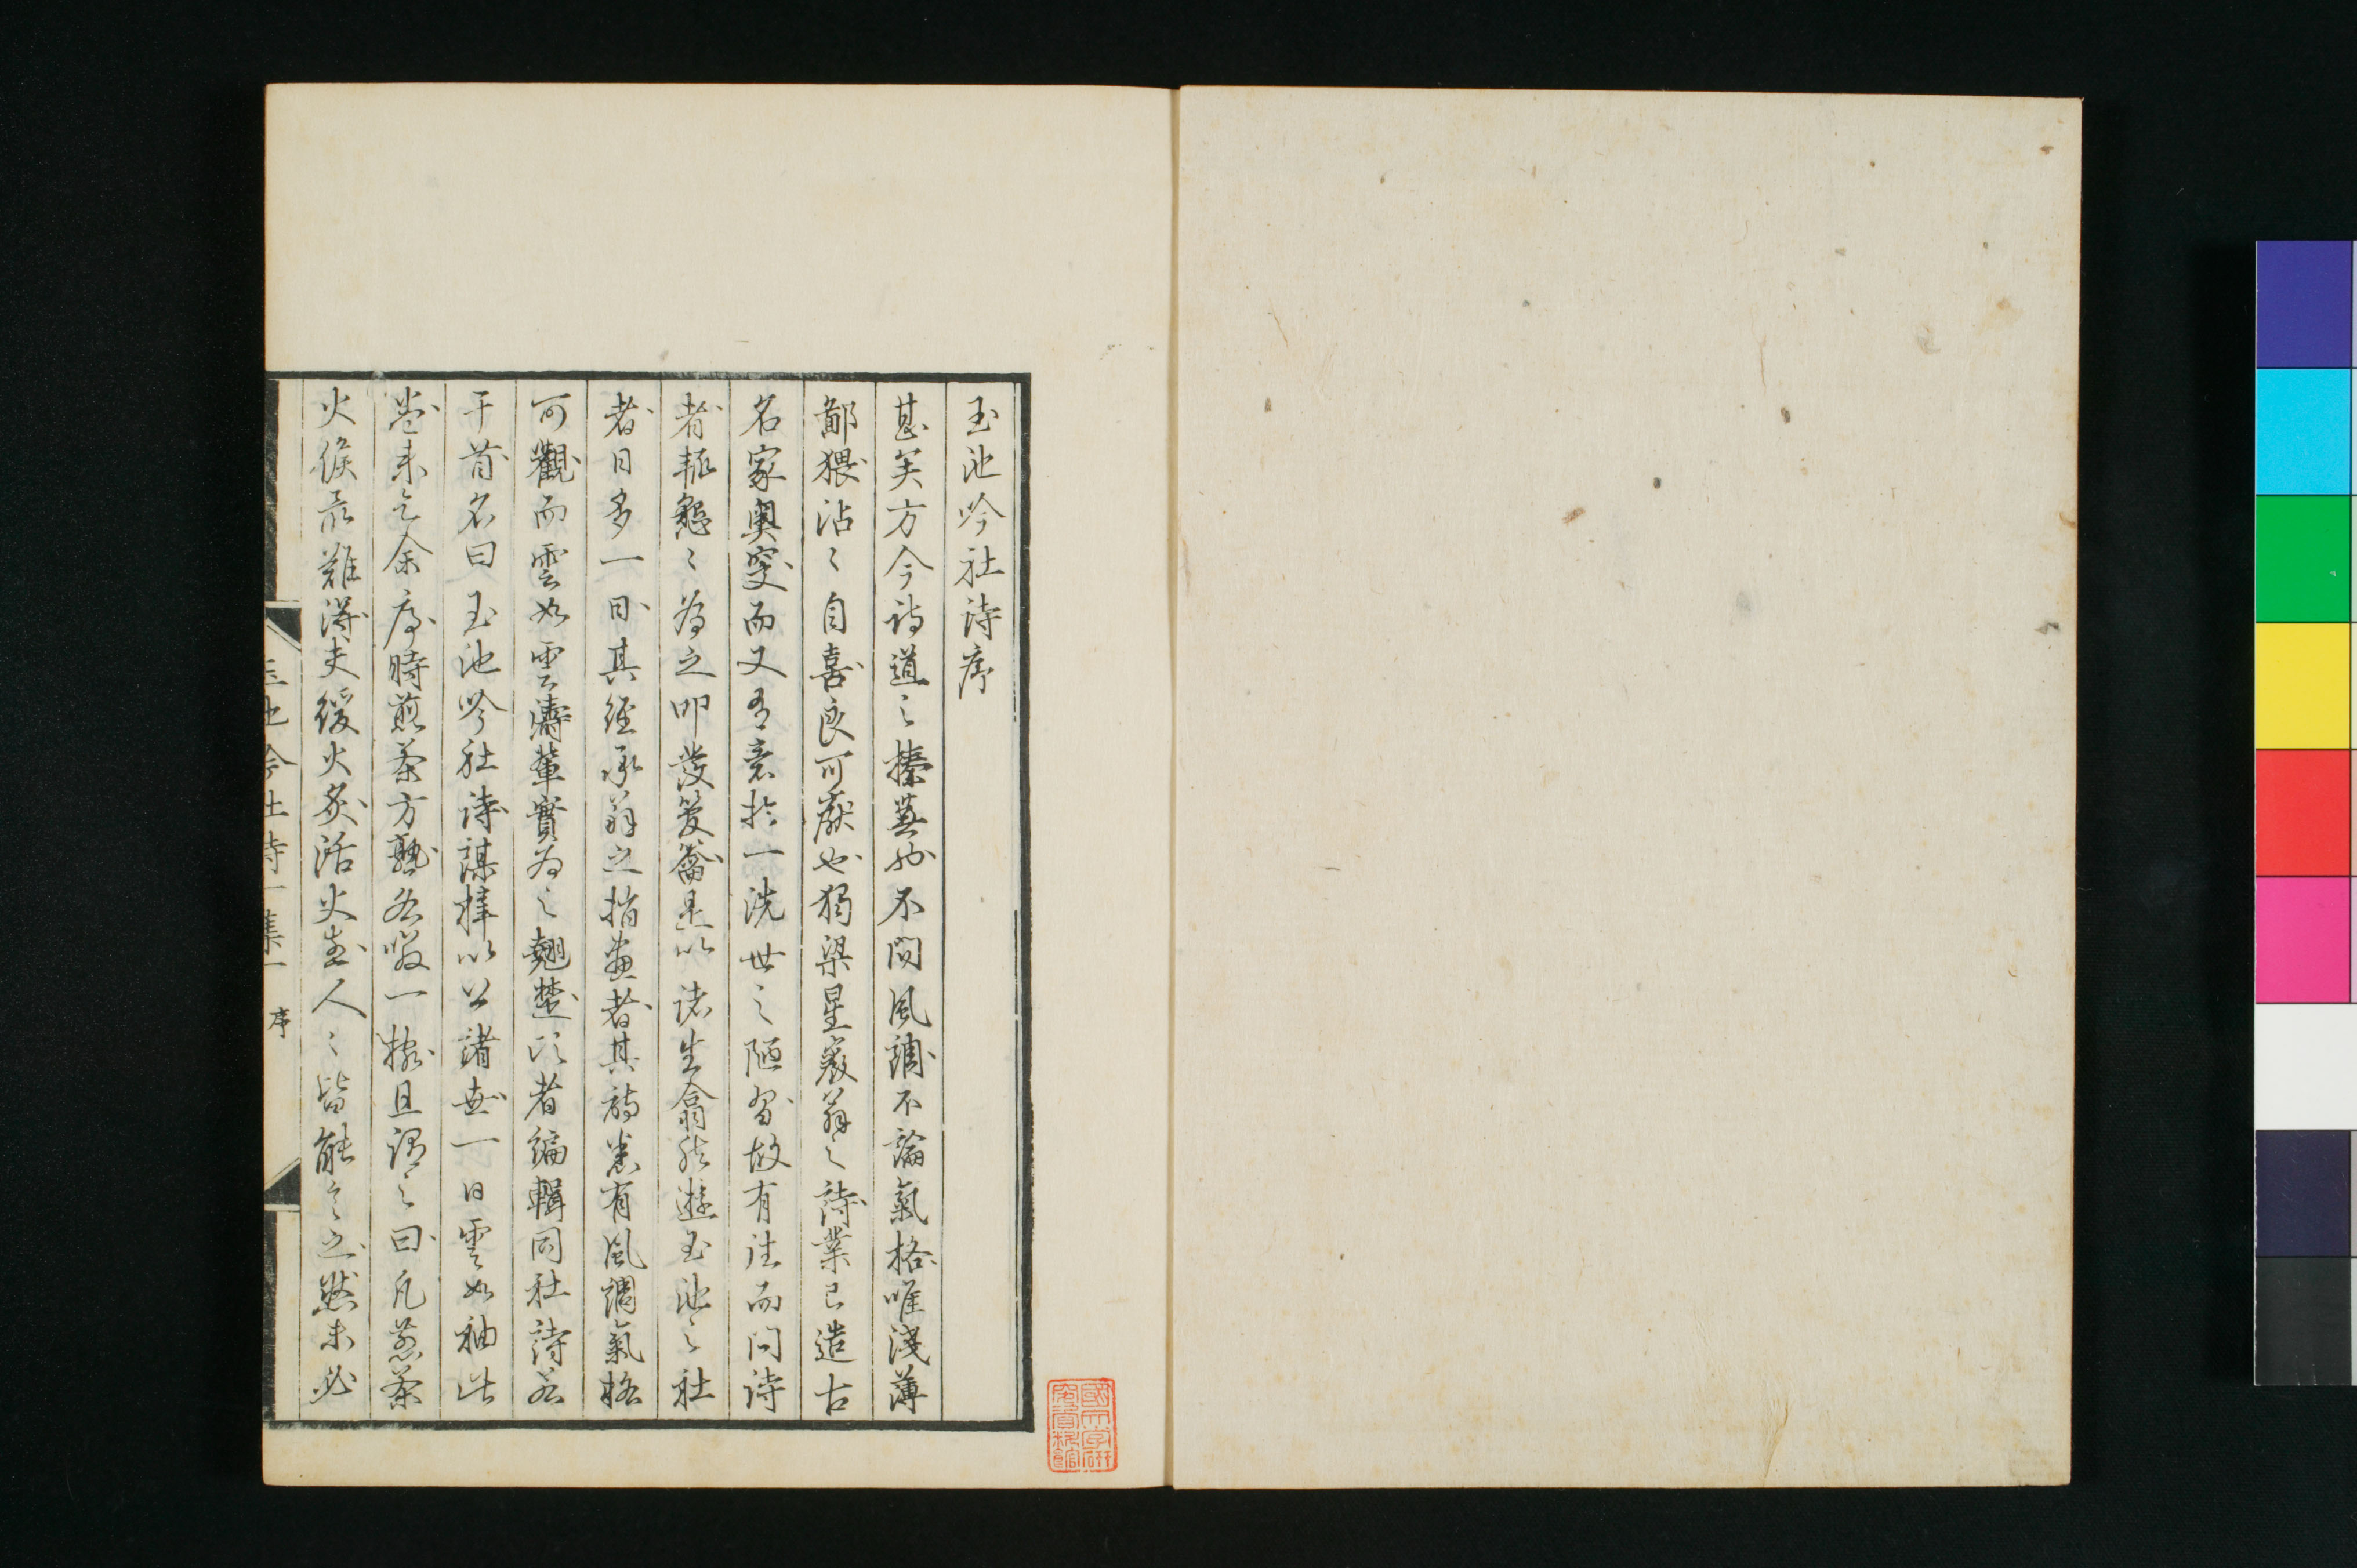 玉池吟社詩序
甚矣方今詩道之榛蕪也不問風調不論氣格唯淺薄
鄙猥沾〻自喜良可厭也獨梁星巖翁之詩業已造古
名家奧窔而又有意於一洗世之陋習故有注而問詩
者輒懇〻為之叩發管籥是以諸生翕然遊玉池之社
者日多一日其經承翁之指畫者其詩悉有風調氣格
可觀而雲如雲濤輩實為之翹楚頃者編輯同社詩若
干首名曰玉池吟社詩謀梓以公諸世一日雲如袖此
卷来乞余序時煎茶方熟各啜一椀且謂之曰凡煎茶
火候最難得夫緩火炙活火煮人〻皆能言之然未必
玉池吟社詩一集
序
國文學研究資料館